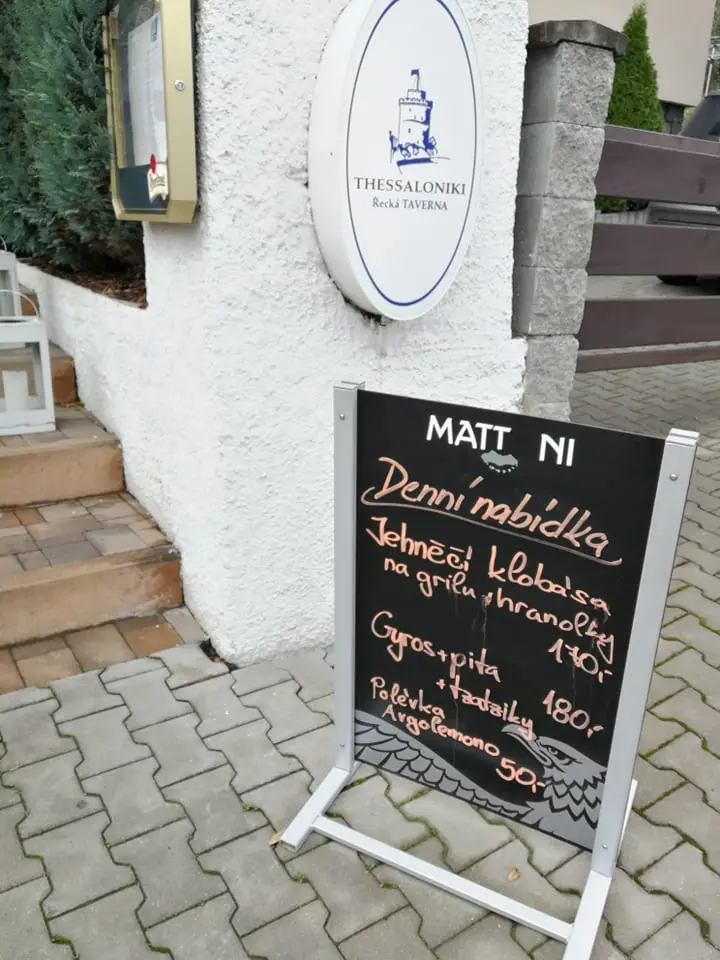 THESSALONIKI
Řecká TAVERNA
MATTONI
Denní nabídka
Jehněčí klobása
na grilu + hranolky
170,-
Gyros + pita
+ tzatziky 180,-
Polévka
Avgolemono 50,-